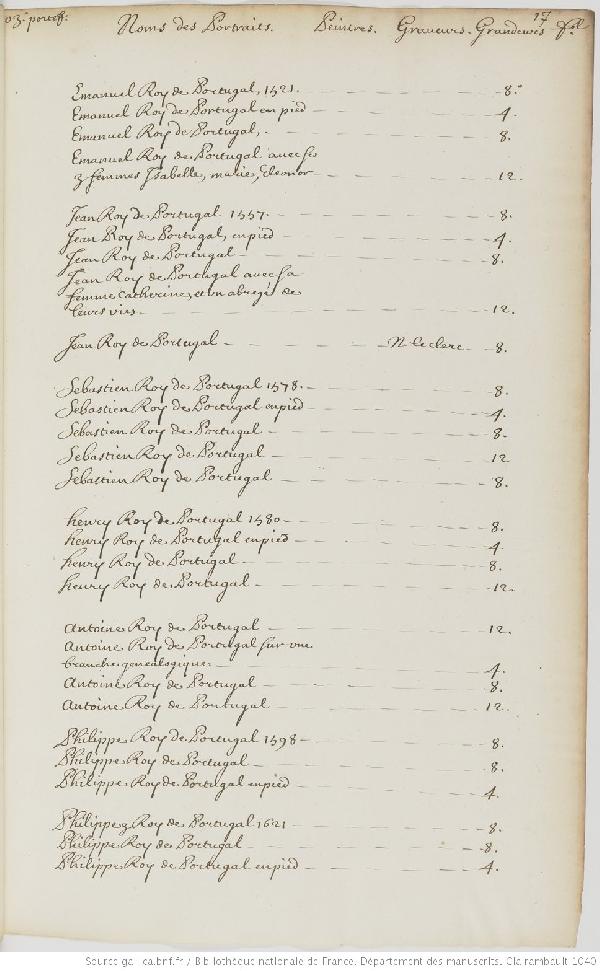 03. portef.
Noms des Portraits. Peintres. Graveurs. Grandeurs 17
Emanuel Roy de Portugal, 1521. 8.
Emanuel Roy de Portugal en pied 4.
Emanuel Roy de Portugal, 8.
Emanuel Roy de Portugal avec ses
3 femmes Isabelle, marie, Eleonor 12.
Jean Roy de Portugal. 1557. 8.
Jean Roy de Portugal, en pied 4.
Jean Roy de Portugal 8.
Jean Roy de Portugal avec sa
femme Catherine, et un abregé de
leurs vies 12.
Jean Roy de Portugal N. le clerc 8.
Sebastien Roy de Portugal 1578. 8.
Sebastien Roy de Portugal en pied 4.
Sebastien Roy de Portugal 8.
Sebastien Roy de Portugal 12
Sebastien Roy de Portugal. 8.
henry Roy de Portugal 1580 8.
henry Roy de Portugal en pied 4.
henry Roy de Portugal 8.
henry Roy de Portugal 12.
Antoine Roy de Portugal 12.
Antoine Roy de Portugal sur une
branche genealogique 4.
Antoine Roy de Portugal 8.
Antoine Roy de Portugal 12.
Philippe Roy de Portugal 1598 8.
Philippe Roy de Portugal 8.
Philippe Roy de Portugal en pied 4.
Philippe 3 Roy de Portugal 1621 8.
Philippe Roy de Portugal 8.
Philippe Roy de Portugal en pied 4.
Source gallica.bnf.fr / Bibliothèque nationale de France. Département des manuscrits. Clairambault 1040